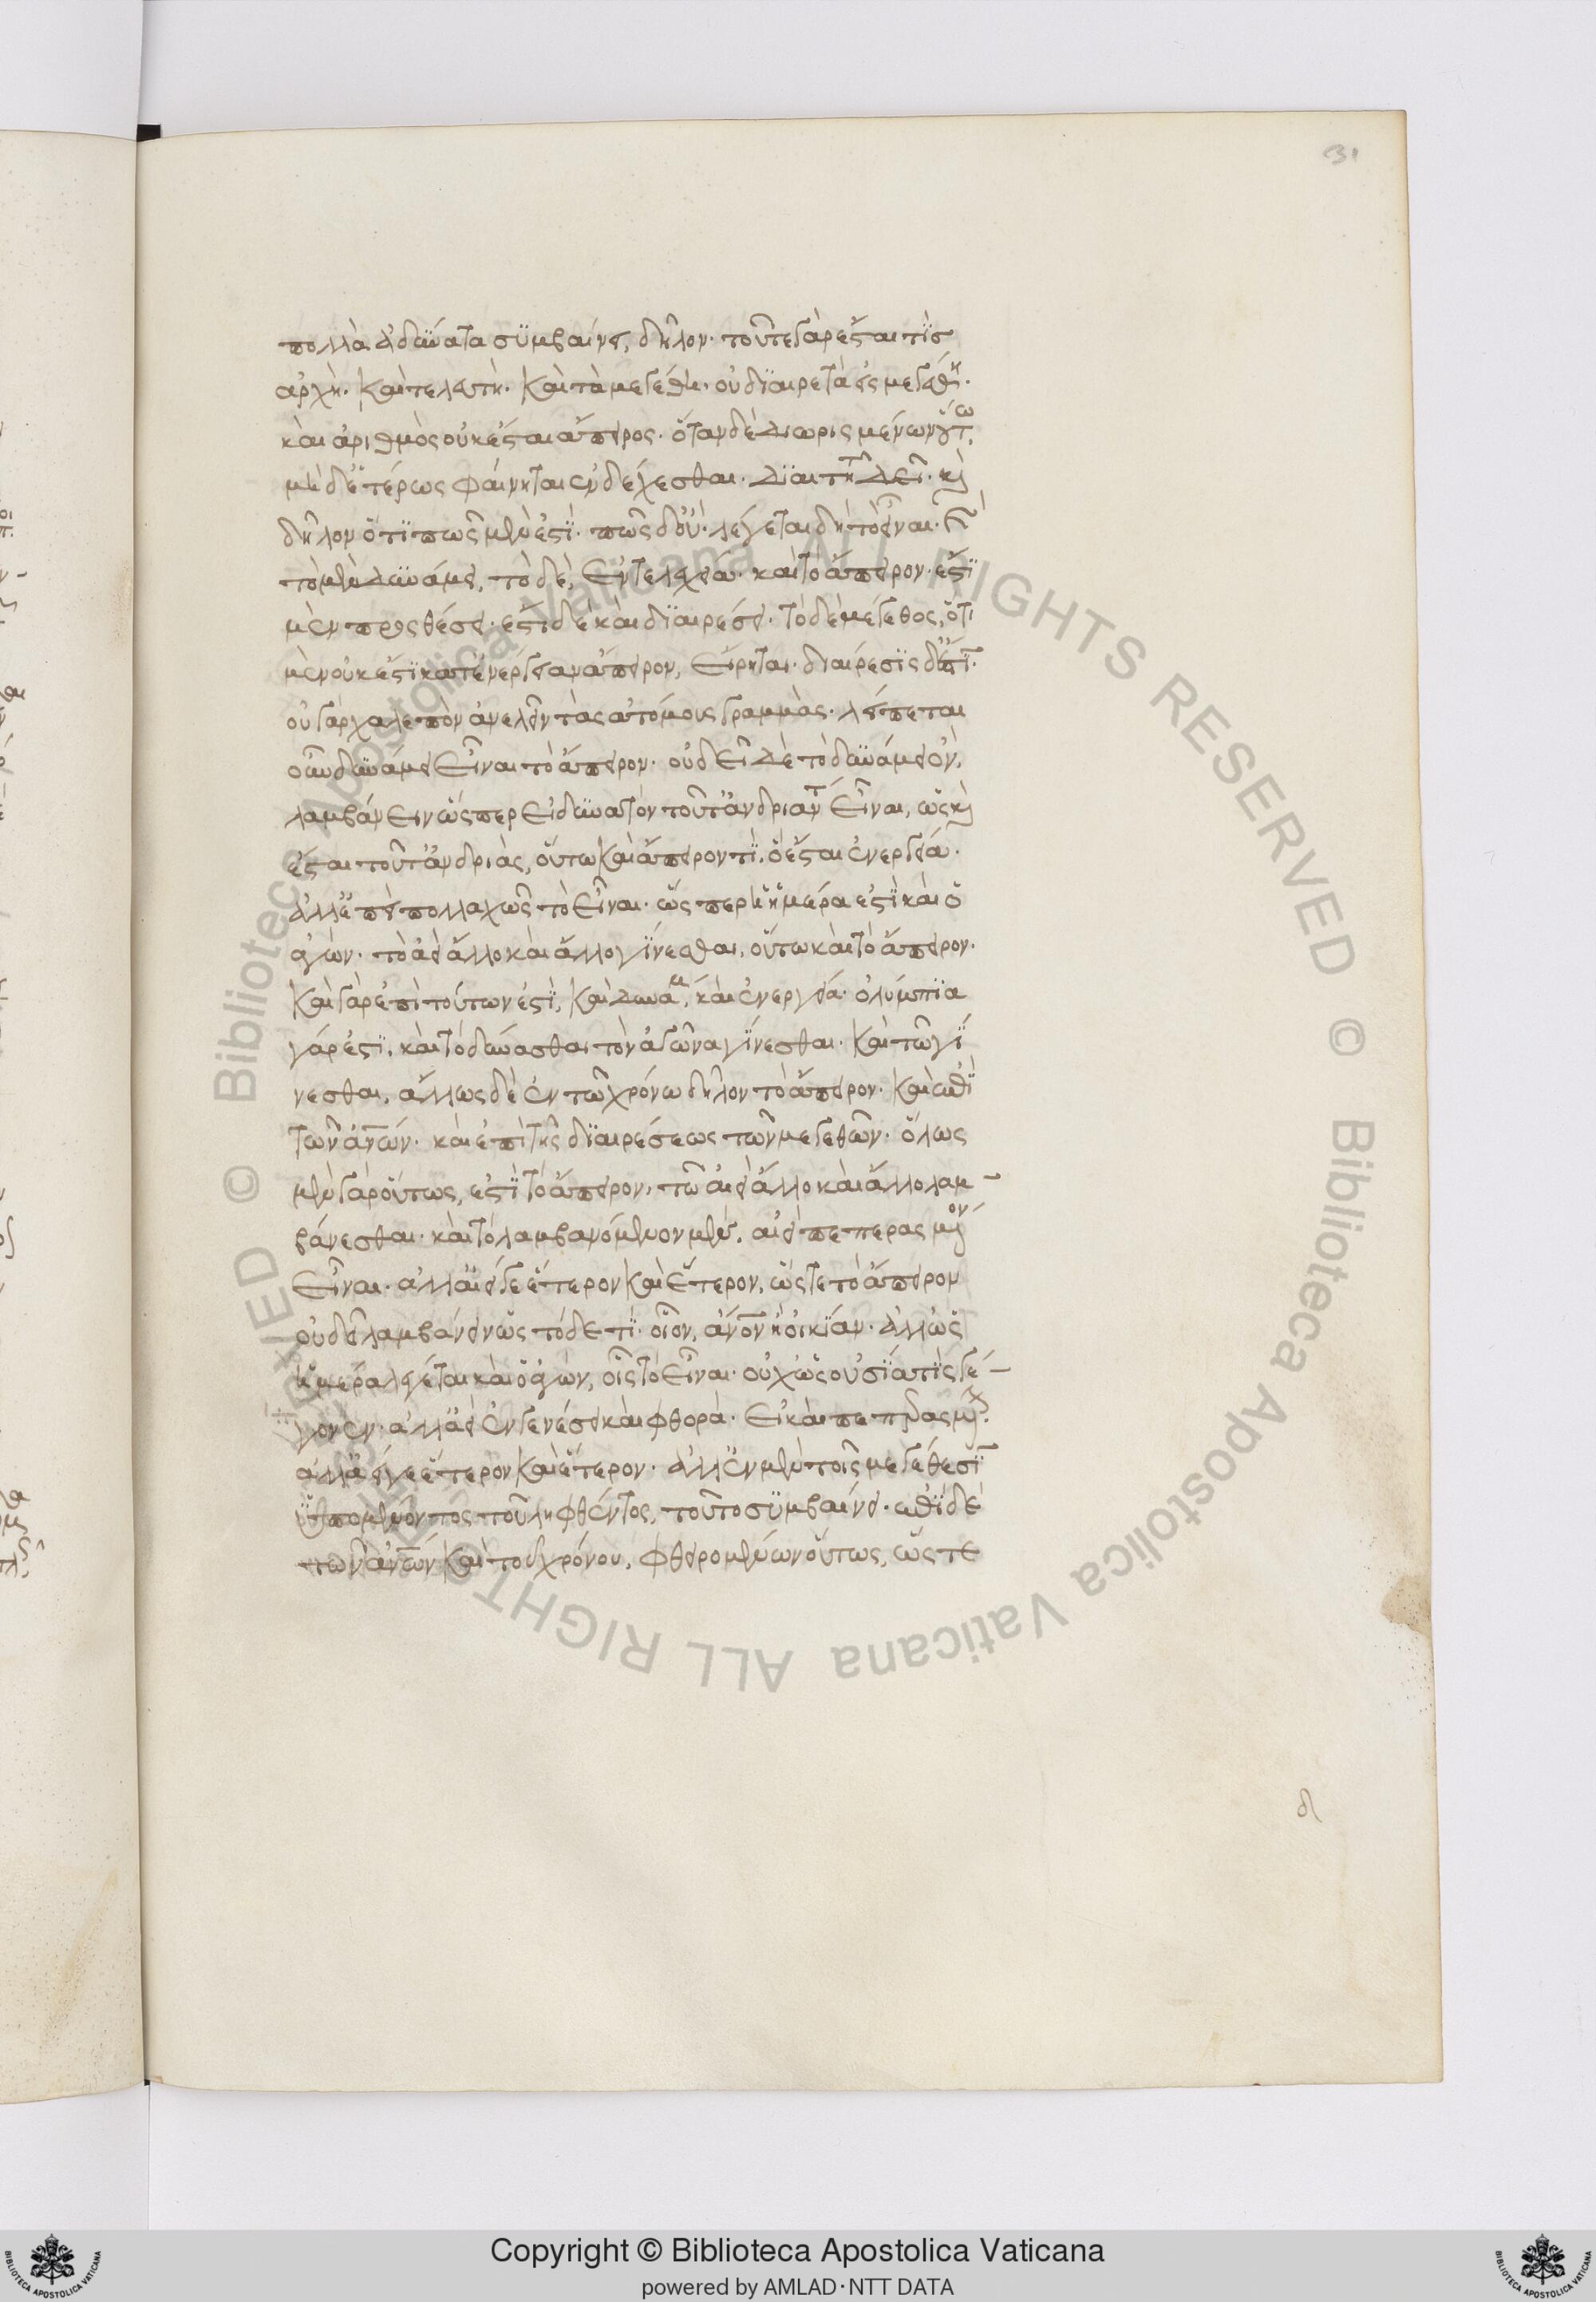 31
πολλὰ ἀδύνατα συμβαίνει, δῆλον· τοῦτε γὰρ ἔσται τὶς
ἀρχὴ· καὶ τελευτὴ· καὶ τὰ μεγέθη· οὐ διαιρετὰ εἰς μεγέθη·
καὶ ἀριθμὸς οὐκ ἔσται ἄπειρος· ὅταν δὲ διωρισμένων οὕτω
μηδετέρως φαίνηται ἐνδέχεσθαι· διαιτητοῦ δεῖ· καὶ
δῆλον ὅτι πῶς μὲν ἐστὶ· πῶς δ' οὔ· λέγεται δὴ τὸ εἶναι·
τὸ μὲν δυνάμει, τὸ δὲ, ἐντελεχείᾳ· καὶ τὸ ἄπειρον· ἔστι
μὲν προσθέσει· ἔστι δὲ καὶ διαιρέσει· τὸ δὲ μέγεθος, ὅτι
μὲν οὐκ ἔστι κατ' ἐνέργειαν ἄπειρον, εἴρηται· διαιρέσει δ' ἐστί·
οὐ γὰρ χαλεπὸν ἀνελεῖν τὰς ἀτόμους γραμμάς· λείπεται
οὖν δυνάμει εἶναι τὸ ἄπειρον· οὐ δεῖ δὲ τὸ δυνάμει ὂν,
λαμβάνειν ὥσπερ εἰ δυνατὸν τοῦτ' ἀνδριάντα εἶναι, ὡς καὶ
ἔσται τοῦτ' ἀνδριὰς, οὕτω καὶ ἄπειρον τὶ, ὃ ἔσται ἐνεργείᾳ·
ἀλλ' ἐπεὶ πολλαχῶς τὸ εἶναι· ὥσπερ ἡ ἡμέρα ἐστὶ καὶ ὁ
ἀγὼν· τὸ ἀεὶ ἄλλο καὶ ἄλλο γίνεσθαι, οὕτω καὶ τὸ ἄπειρον·
καὶ γὰρ ἐπὶ τούτων ἐστὶ, καὶ δυνάμει, καὶ ἐνεργείᾳ· ὀλύμπια
γάρ ἐστι, καὶ τὸ δύνασθαι τὸν ἀγῶνα γίνεσθαι· καὶ τῶ γί
νεσθαι, ἄλλως δὲ ἐν τῶ χρόνω δῆλον τὸ ἄπειρον· καὶ ἐπὶ
τῶν ἀνθρώπων· καὶ ἐπὶ τῆς διαιρέσεως τῶν μεγεθῶν· ὅλως
μὲν γὰρ οὕτως, ἐστὶ τὸ ἄπειρον, τῶ ἀεὶ ἄλλο καὶ ἄλλο λαμ-
βάνεσθαι· καὶ τὸ λαμβανόμενον μὲν, ἀεὶ πεπερασμένον
εἶναι· ἀλλ' ἀεί γε ἕτερον καὶ ἕτερον, ὥστε τὸ ἄπειρον
οὐ δεῖ λαμβάνειν ὡς τόδε τί· οἷον, ἄνθρωπον ἢ οἰκίαν· ἀλλ' ὡς
ἡμέρα λέγεται καὶ ὁ ἀγὼν, οἷς τὸ εἶναι· οὐχ ὡς οὐσία τὶς γέ-
γονεν· ἀλλ' ἀεὶ ἐν γενέσει καὶ φθορᾷ· εἰ καὶ πεπερασμένον·
ἀλλ' ἀεί γε ἕτερον καὶ ἕτερον· ἀλλ' ἐν μὲν τοῖς μεγέθεσι
ὑπομένοντος τοῦ ληφθέντος, τοῦτο συμβαίνει· ἐπὶ δὲ
τῶν ἀνθρώπων καὶ τοῦ χρόνου, φθειρομένων οὕτως, ὥστε
Copyright © Biblioteca Apostolica Vaticana
powered by AMLAD·NTT DATA
© Biblioteca Apostolica Vaticana ALL RIGHTS RESERVED © Biblioteca Apostolica Vaticana ALL RIGHTS RESERVED